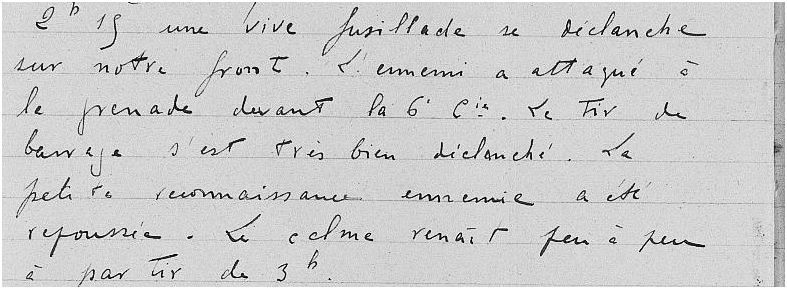 2h 15 une vive fusillade se déclanche
sur notre front. L'ennemi a attaqué à
la grenade devant la 6e Cie. Le tir de
barrage s'est très bien déclanché. La
petite reconnaissance ennemie a été
repoussée. Le calme renaît peu à peu
à partir de 3h.